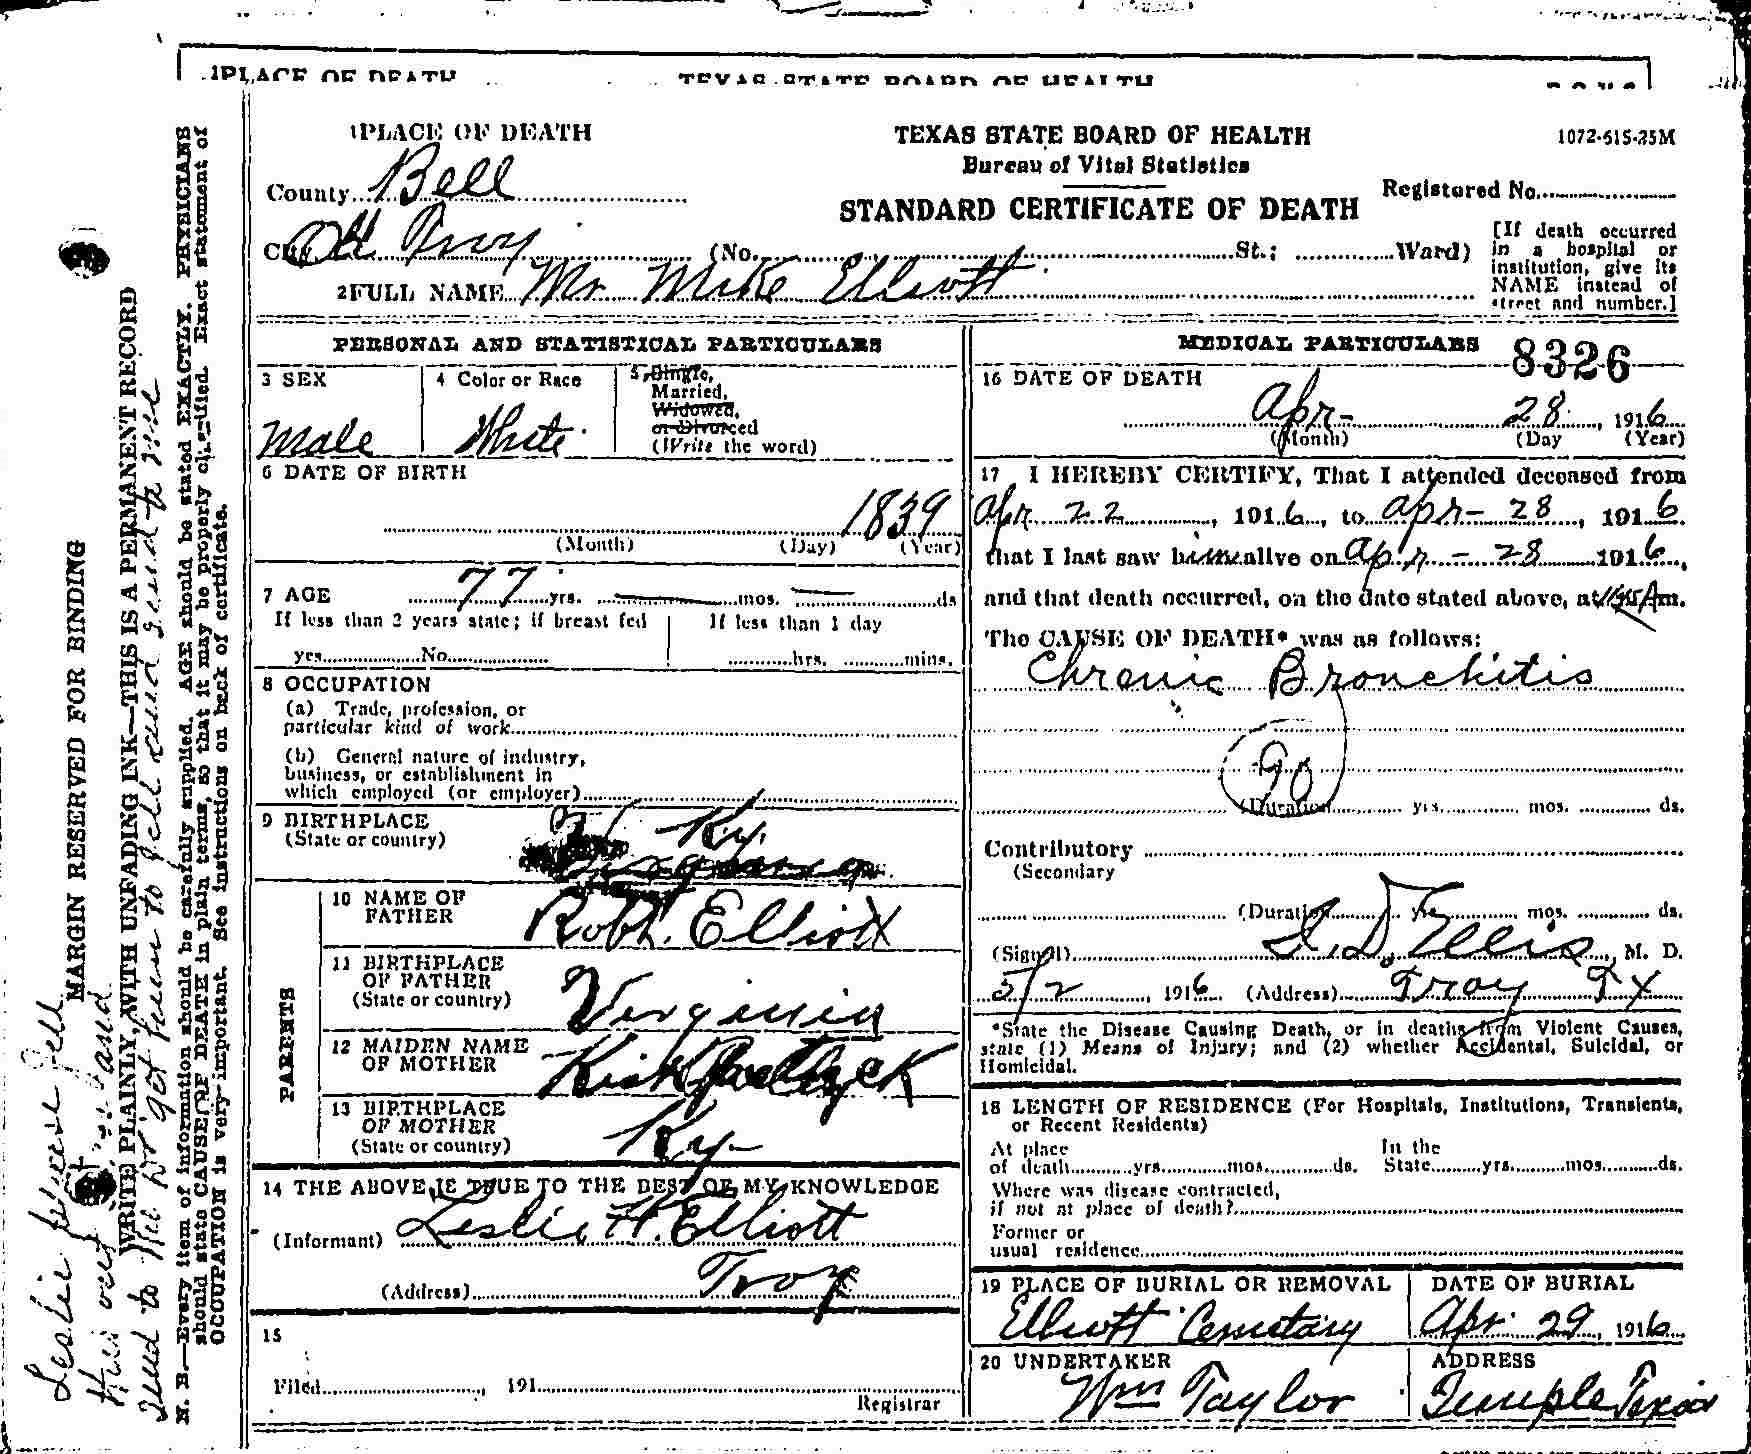 1 PLACE OF DEATH
TEXAS STATE BOARD OF HEALTH
1 PLACE OF DEATH
TEXAS STATE BOARD OF HEALTH
1072-615-25M
Bureau of Vital Statistics
County Bell
Registered No.
STANDARD CERTIFICATE OF DEATH
City Old Troy (No. St.; Ward)
[If death occurred
in a hospital or
institution, give its
NAME instead of
street and number.]
2 FULL NAME Mr Mike Elliott
PERSONAL AND STATISTICAL PARTICULARS
3 SEX
Male
4 Color or Race
White
5 Single,
Married,
Widowed,
or Divorced
(Write the word)
6 DATE OF BIRTH
1839
(Month) (Day) (Year)
7 AGE 77 yrs. — mos. — ds
If less than 2 years state; if breast fed
yes No
If less than 1 day
hrs. mins.
8 OCCUPATION
(a) Trade, profession, or
particular kind of work
(b) General nature of industry,
business, or establishment in
which employed (or employer)
9 BIRTHPLACE
(State or country)
Ky.
PARENTS
10 NAME OF
FATHER
Robt. Elliott
11 BIRTHPLACE
OF FATHER
(State or country)
Virginia
12 MAIDEN NAME
OF MOTHER
13 BIRTHPLACE
OF MOTHER
(State or country)
Ky-
14 THE ABOVE IS TRUE TO THE BEST OF MY KNOWLEDGE
(Informant) Leslie H. Elliott
(Address) Troy
15
Filed , 191
Registrar
MEDICAL PARTICULARS
8326
16 DATE OF DEATH
Apr- 28, 1916
(Month) (Day (Year)
17 I HEREBY CERTIFY, That I attended deceased from
Apr 22, 1916, to Apr- 28, 1916
that I last saw him alive on Apr.- 28 1916,
and that death occurred, on the date stated above, at Am.
The CAUSE OF DEATH* was as follows:
Chronic Bronchitis
90
(Duration yrs. mos. ds.
Contributory
(Secondary
(Duration yrs. mos. ds.
(Signed) Ellis, M. D.
5/2, 1916 (Address) Troy Tx
*State the Disease Causing Death, or in deaths from Violent Causes,
state (1) Means of Injury; and (2) whether Accidental, Suicidal, or
Homicidal.
18 LENGTH OF RESIDENCE (For Hospitals, Institutions, Transients,
or Recent Residents)
At place
of death yrs. mos. ds.
In the
State yrs. mos. ds.
Where was disease contracted,
if not at place of death?
Former or
usual residence
19 PLACE OF BURIAL OR REMOVAL
Elliott Cemetary
DATE OF BURIAL
Apr. 29, 1916
20 UNDERTAKER
Wm Taylor
ADDRESS
Temple Texas
MARGIN RESERVED FOR BINDING
WRITE PLAINLY, WITH UNFADING INK—THIS IS A PERMANENT RECORD
N. B.—Every item of information should be carefully supplied. AGE should be stated EXACTLY. PHYSICIANS
should state CAUSE OF DEATH in plain terms, so that it may be properly classified. Exact statement of
OCCUPATION is very important. See instructions on back of certificate.
Leslie please fill
this out and
send to me